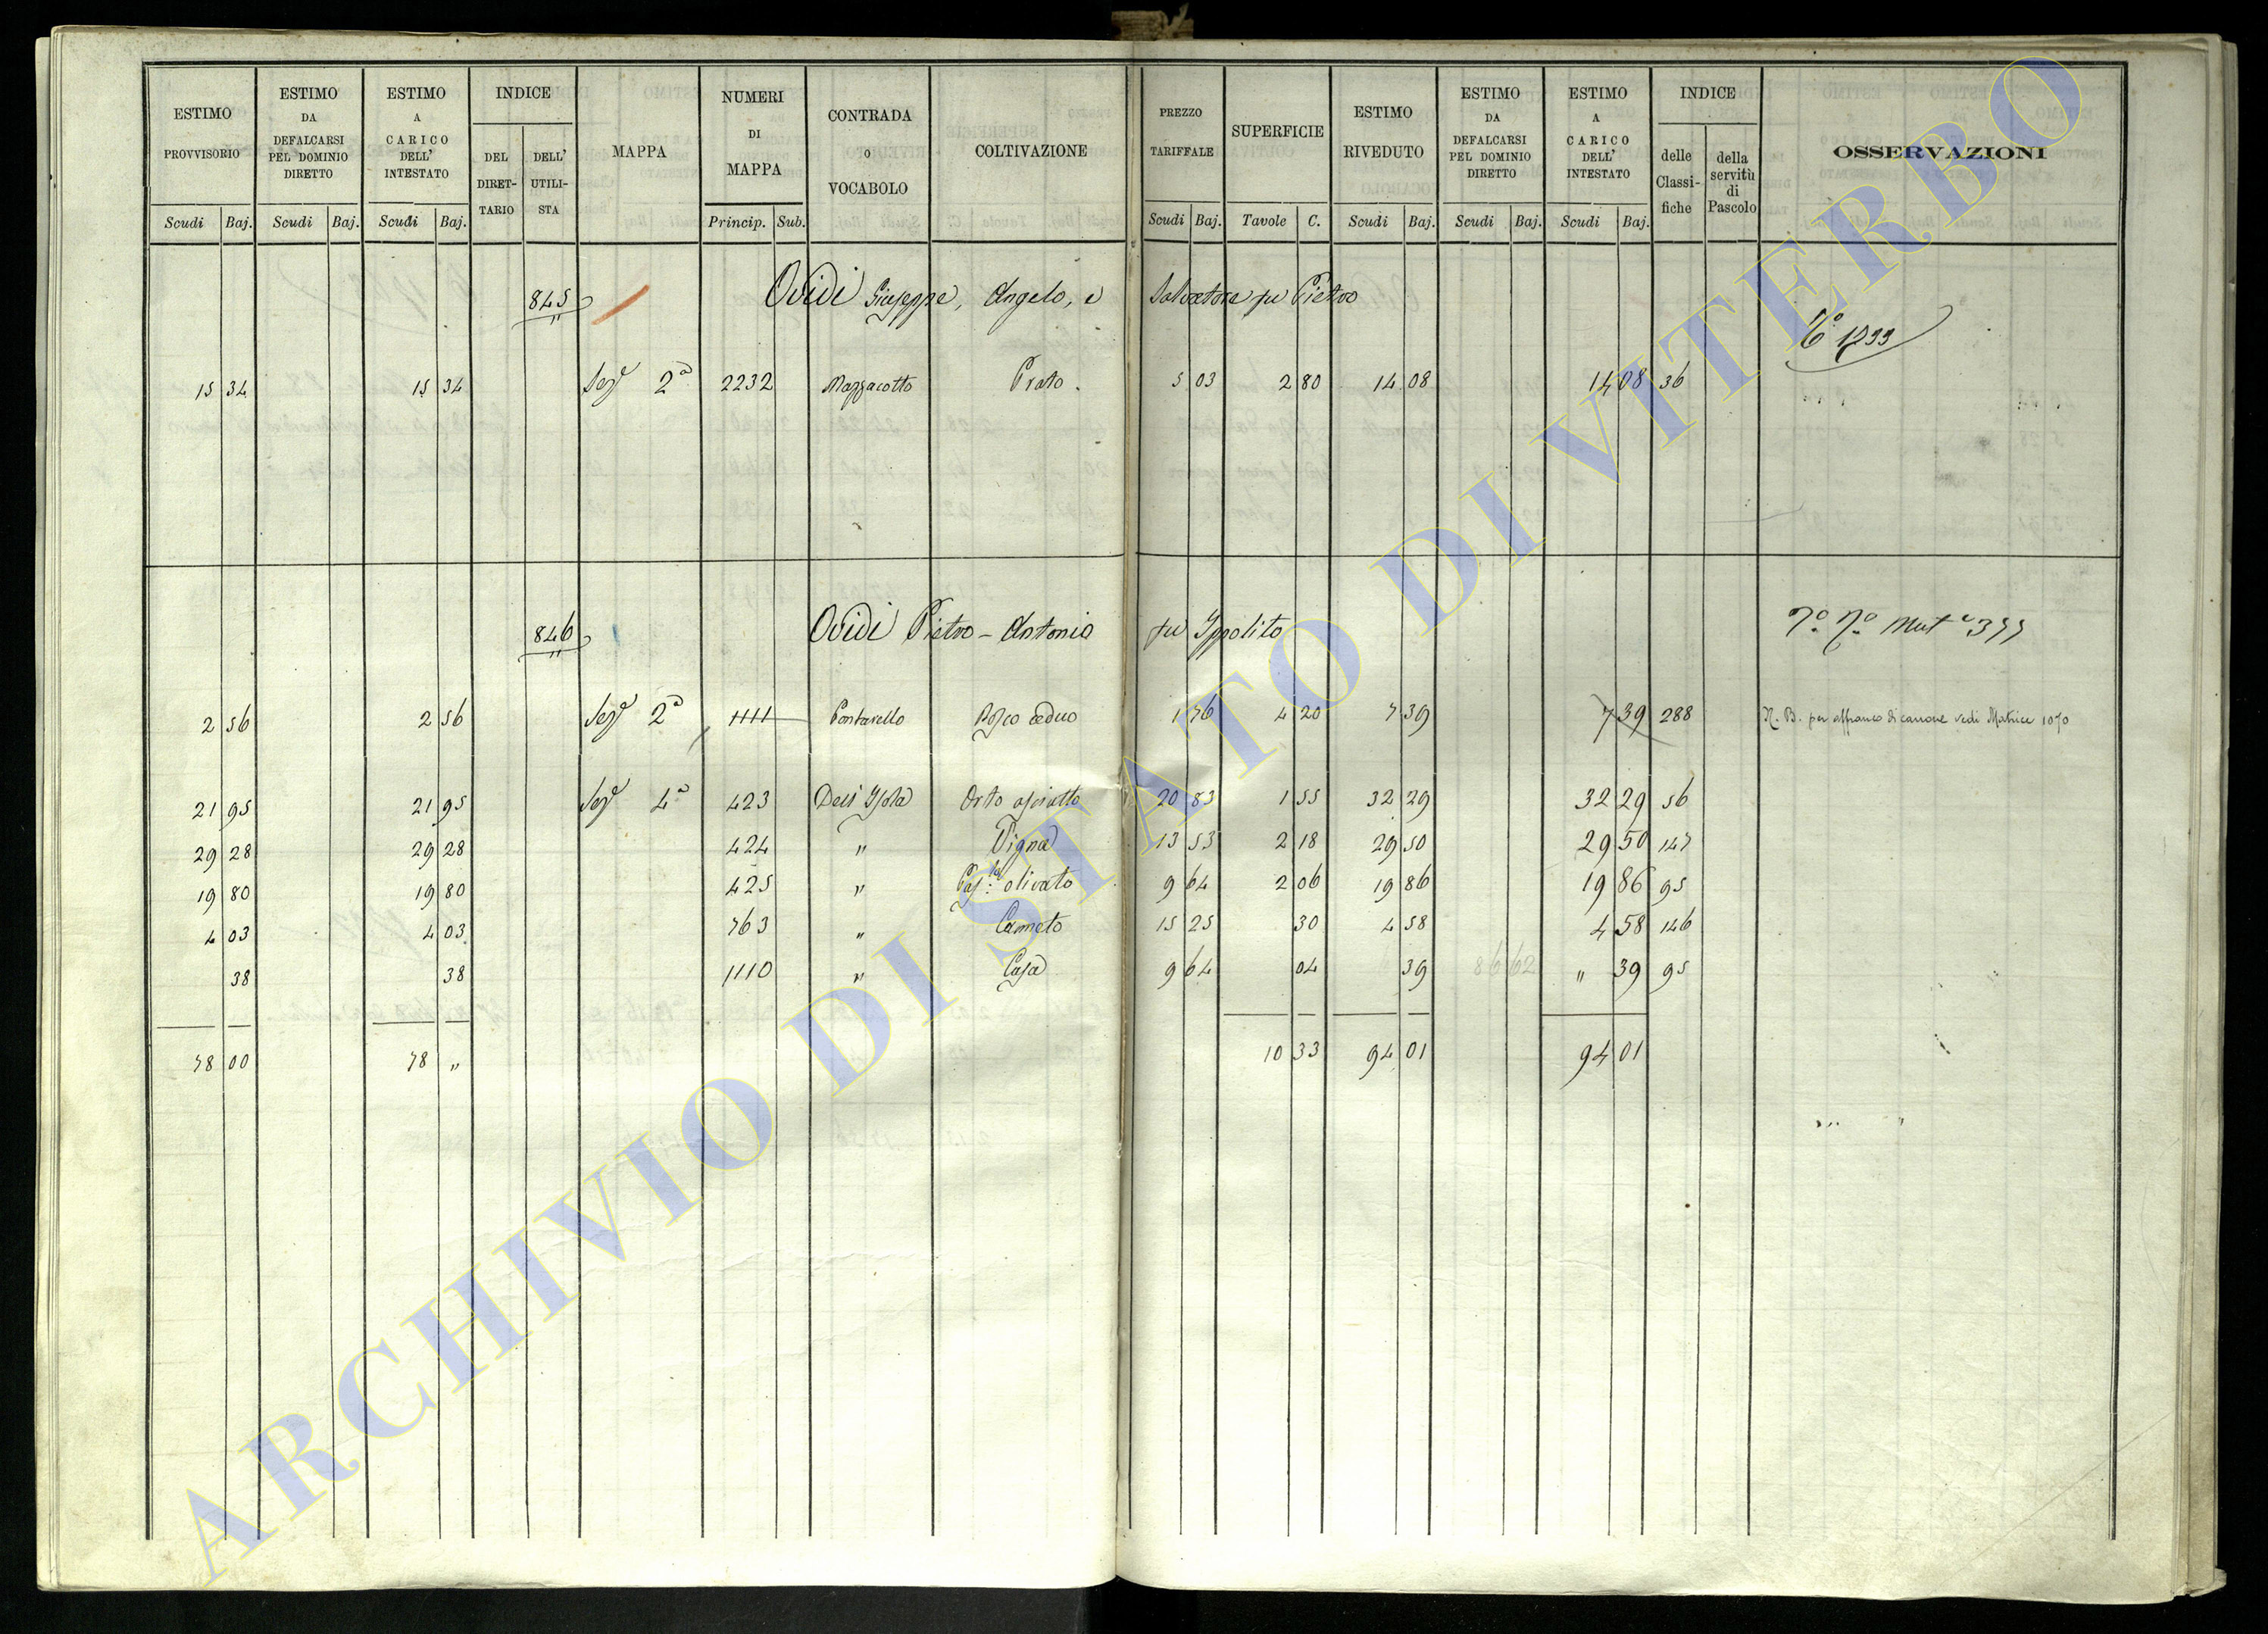 ESTIMO PROVVISORIO | ESTIMO DA DEFALCARSI PEL DOMINIO DIRETTO | ESTIMO A CARICO DELL' INTESTATO | INDICE | MAPPA | NUMERI DI MAPPA | CONTRADA O VOCABOLO | COLTIVAZIONE | PREZZO TARIFFALE | SUPERFICIE | ESTIMO RIVEDUTO | ESTIMO DA DEFALCARSI PEL DOMINIO DIRETTO | ESTIMO A CARICO DELL' INTESTATO | INDICE | OSSERVAZIONI
DEL DIRET-TARIO | DELL' UTILI-STA | delle Classi-fiche | della servitù di Pascolo
Scudi | Baj. | Scudi | Baj. | Scudi | Baj. | Princip. | Sub. | Scudi | Baj. | Tavole | C. | Scudi | Baj. | Scudi | Baj. | Scudi | Baj.
845 Ovidi Giuseppe, Angelo, e Salvatore fu Pietro
N° 1233
15 34 | 15 34 | Sez.e 2a | 2232 | Mazzacotto | Prato. | 5 03 | 2 80 | 14 08 | 14 08 | 36
846 Ovidi Pietro-Antonio fu Ippolito
2 56 | 2 56 | Sez.e 2a | 1111 | Pontarello | Bosco ceduo | 1 76 | 4 20 | 7 39 | 7 39 | 288 | N. B. per affranco di canone vedi Matrice 1070
21 95 | 21 95 | Sez.e 4a | 423 | Dell' Isola | Orto asciutto | 20 83 | 1 55 | 32 29 | 32 29 | 56
29 28 | 29 28 | 424 | " | Vigna | 13 53 | 2 18 | 29 50 | 29 50 | 147
19 80 | 19 80 | 425 | " | Pas:lo olivato | 9 64 | 2 06 | 19 86 | 19 86 | 95
4 03 | 4 03 | 763 | " | Canneto | 15 25 | 30 | 4 58 | 4 58 | 146
38 | 38 | 1110 | " | Casa | 9 64 | 04 | 39 | 86 62 | " 39 | 95
78 00 | 78 " | 10 33 | 94 01 | 94 01
ARCHIVIO DI STATO DI VITERBO